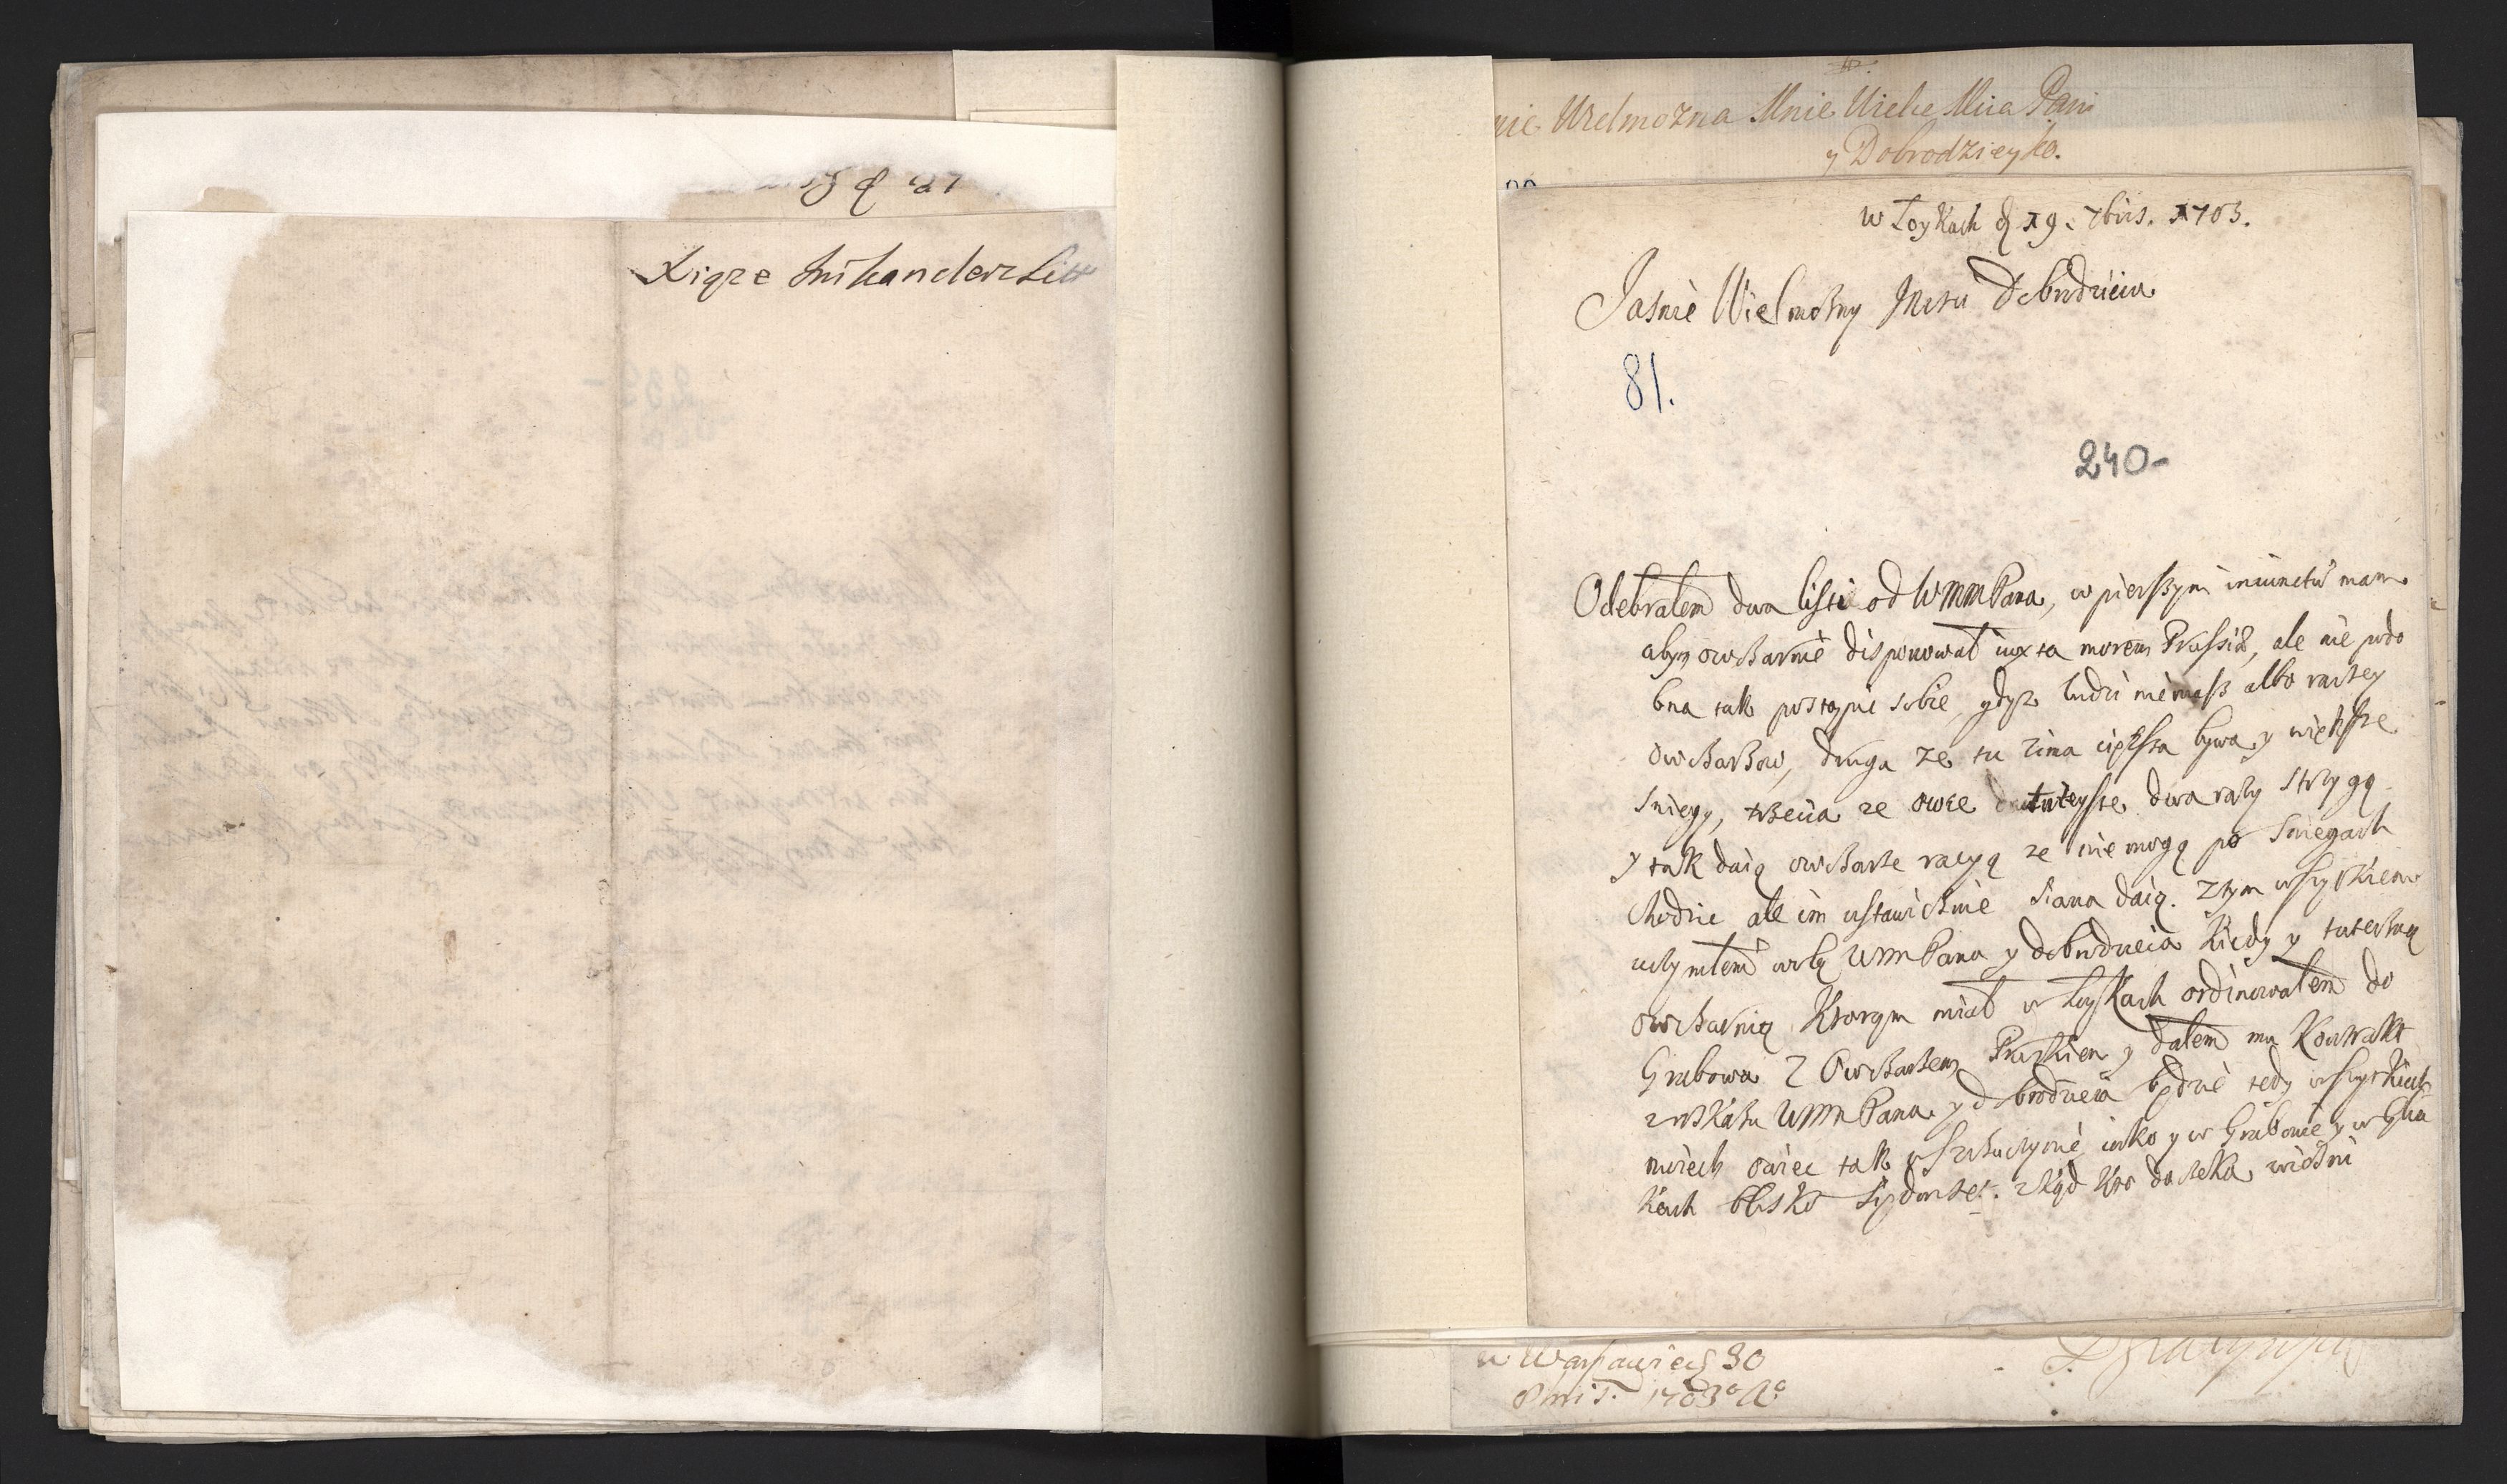 Xiąze
nie Wielmozna Mnie Wielce Mćia Pani
y Dobrodzieyko.
w Łoykach d 19. 7bris. 1703.
Jasnie Wielmożny Mści Dobrodzieiu
81.
240-
Odebrałem dwa listi od WMMPana, w pierszym iniunctu mam
abym owczarnie disponował iuxta morem Prussiæ, ale nie podo
bna tak postąpic sobie, gdysz ludzi niemasz albo raczey
owczarzow, druga ze tu zima cięższa bywa y większe
sniegy, trzecia ze owce tuteysze dwa razy strzygą
y tak daią owczarze racyą ze nie mogą po sniegach
chodzic ale im ustawicznie siana daią. Z tym wszytkiem
uczyniłem wolą WMMPana y dobrodzieia kiedy y
owczarnią ktorąm miał w Łoykach ordinowałem do
Grabowa z Owczarzem Pruskiem y dałem mu Kontrakt
z roskazu WMMPana y dobrodzieia będzie tedy wszytkich
owiec tak w Szczuczynie iako y w Grabowie y w
kach blisko
w Warszawie d 30
8bris. 1703